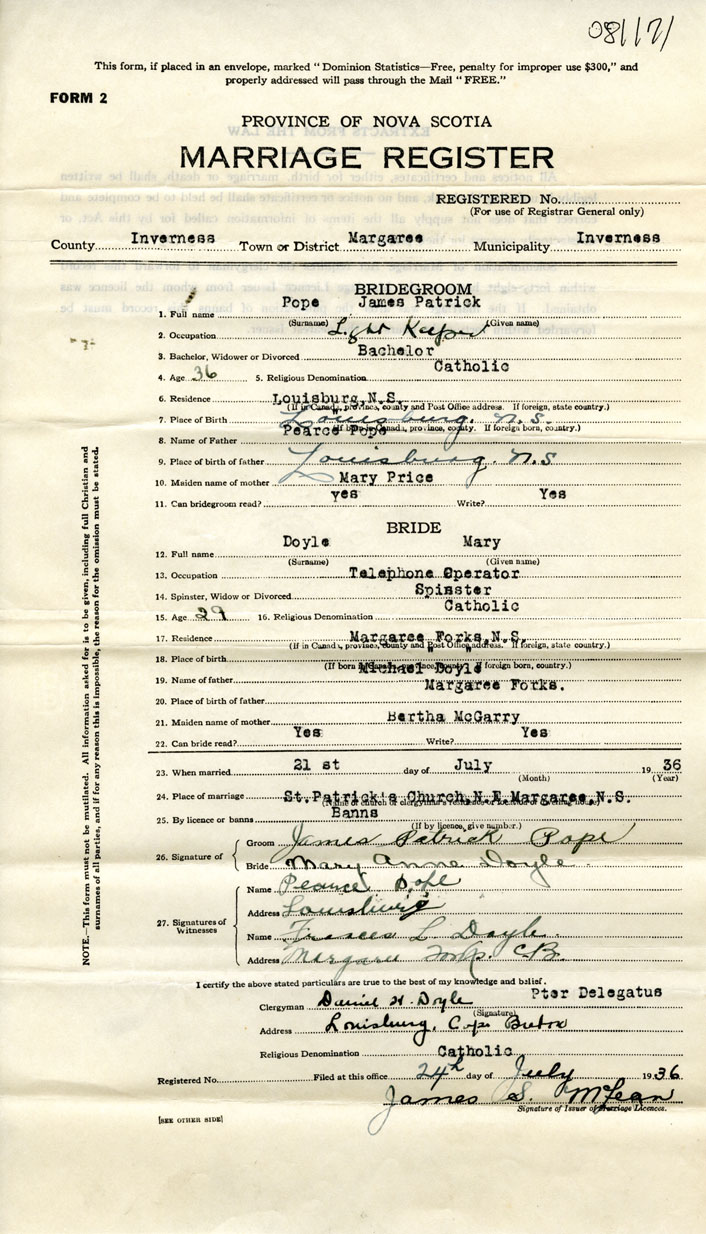 081171
This form, if placed in an envelope, marked "Dominion Statistics—Free, penalty for improper use $300," and
properly addressed will pass through the Mail "FREE."
FORM 2
PROVINCE OF NOVA SCOTIA
MARRIAGE REGISTER
REGISTERED No.
(For use of Registrar General only)
County Inverness Town or District Margaree Municipality Inverness
BRIDEGROOM
1. Full name Pope James Patrick
(Surname) (Given name)
2. Occupation Light Keeper
3. Bachelor, Widower or Divorced Bachelor
4. Age 36 5. Religious Denomination Catholic
6. Residence Louisburg, N.S.
(If in Canada, province, county and Post Office address. If foreign, state country.)
7. Place of Birth Louisburg. N.S.
(If born in Canada, province, county. If foreign born, country.)
8. Name of Father Pearce Pope
9. Place of birth of father Louisburg. N.S
10. Maiden name of mother Mary Price
11. Can bridegroom read? yes Write? Yes
BRIDE
12. Full name Doyle Mary
(Surname) (Given name)
13. Occupation Telephone Operator
14. Spinster, Widow or Divorced Spinster
15. Age 29 16. Religious Denomination Catholic
17. Residence Margaree Forks, N.S.
(If in Canada, province, county and Post Office address. If foreign, state country.)
18. Place of birth " "
(If born in Canada, province, county. If foreign born, country.)
19. Name of father Michael Doyle
20. Place of birth of father Margaree Forks.
21. Maiden name of mother Bertha McGarry
22. Can bride read? Yes Write? Yes
23. When married 21 st day of July 19 36
(Month) (Year)
24. Place of marriage St. Patrick's Church, N.E. Margaree, N.S.
25. By licence or banns Banns
(If by licence, give number.)
26. Signature of Groom James Patrick Pope
Bride Mary Anne Doyle
27. Signatures of Witnesses
Name Pearce Pope
Address Louisburg
Name Frances L Doyle
Address Margaree Forks. C.B.
I certify the above stated particulars are to the best of my knowledge and belief.
Clergyman Daniel H. Doyle Pter Delegatus
(Signature)
Address Louisburg, Cape Breton
Religious Denomination Catholic
Registered No. Filed at this office 24th day of July 1936
James S. McLean
Signature of Issuer of Marriage Licences.
[SEE OTHER SIDE]
NOTE.—This form must not be mutilated. All information asked for is to be given, including full Christian and
surnames of all parties, and if for any reason this is impossible, the reason for the omission must be stated.